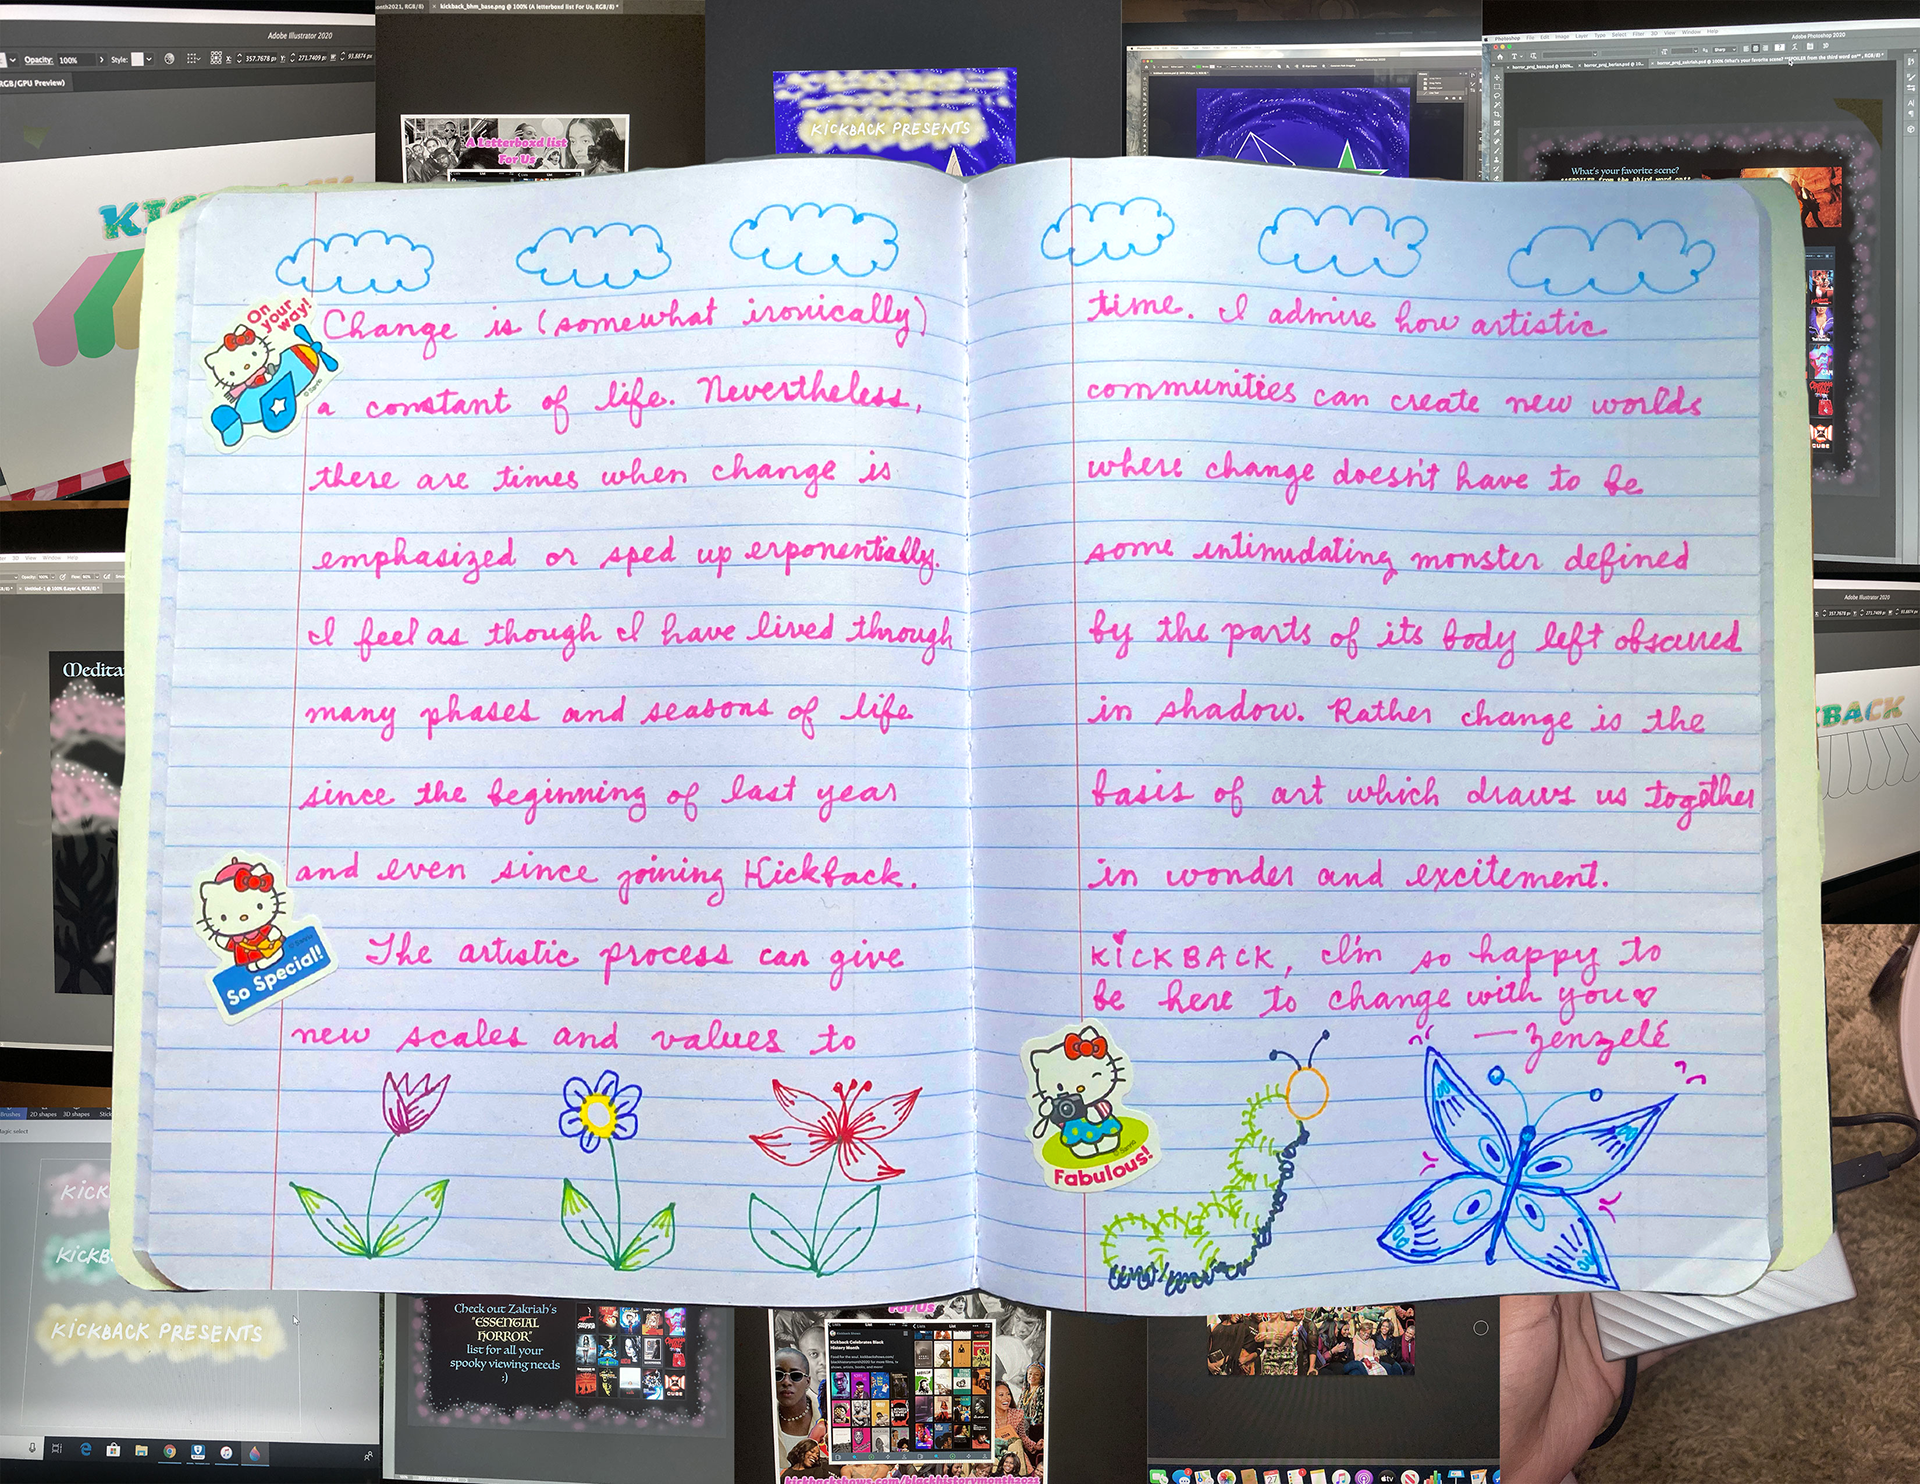 Adobe Illustrator 2020
Opacity: 100%
Style:
RGB/GPU Preview)
kickback_bhm_base.png @ 100% (A letterboxd list For Us, RGB/8) *
A Letterboxd list
For Us
KICKBACK PRESENTS
Adobe Photoshop 2020
What's your favorite scene?
On your way!
Change is (somewhat ironically)
a constant of life. Nevertheless,
there are times when change is
emphasized or sped up exponentially.
I feel as though I have lived through
many phases and seasons of life
since the beginning of last year
and even since joining Kickback.
The artistic process can give
new scales and values to
So Special!
time. I admire how artistic
communities can create new worlds
where change doesn't have to be
some intimidating monster defined
by the parts of its body left obscured
in shadow. Rather change is the
basis of art which draws us together
in wonder and excitement.
KICKBACK, I'm so happy to
be here to change with you
— Zenzelé
Fabulous!
Medita
Adobe Illustrator 2020
KBACK
KICK
KICKB
KICKBACK PRESENTS
Check out Zakriah's
"ESSENTIAL
HORROR"
list for all your
spooky viewing needs
:)
For Us
Kickback Celebrates Black
History Month
kickbackshows.com/blackhistorymonth2021